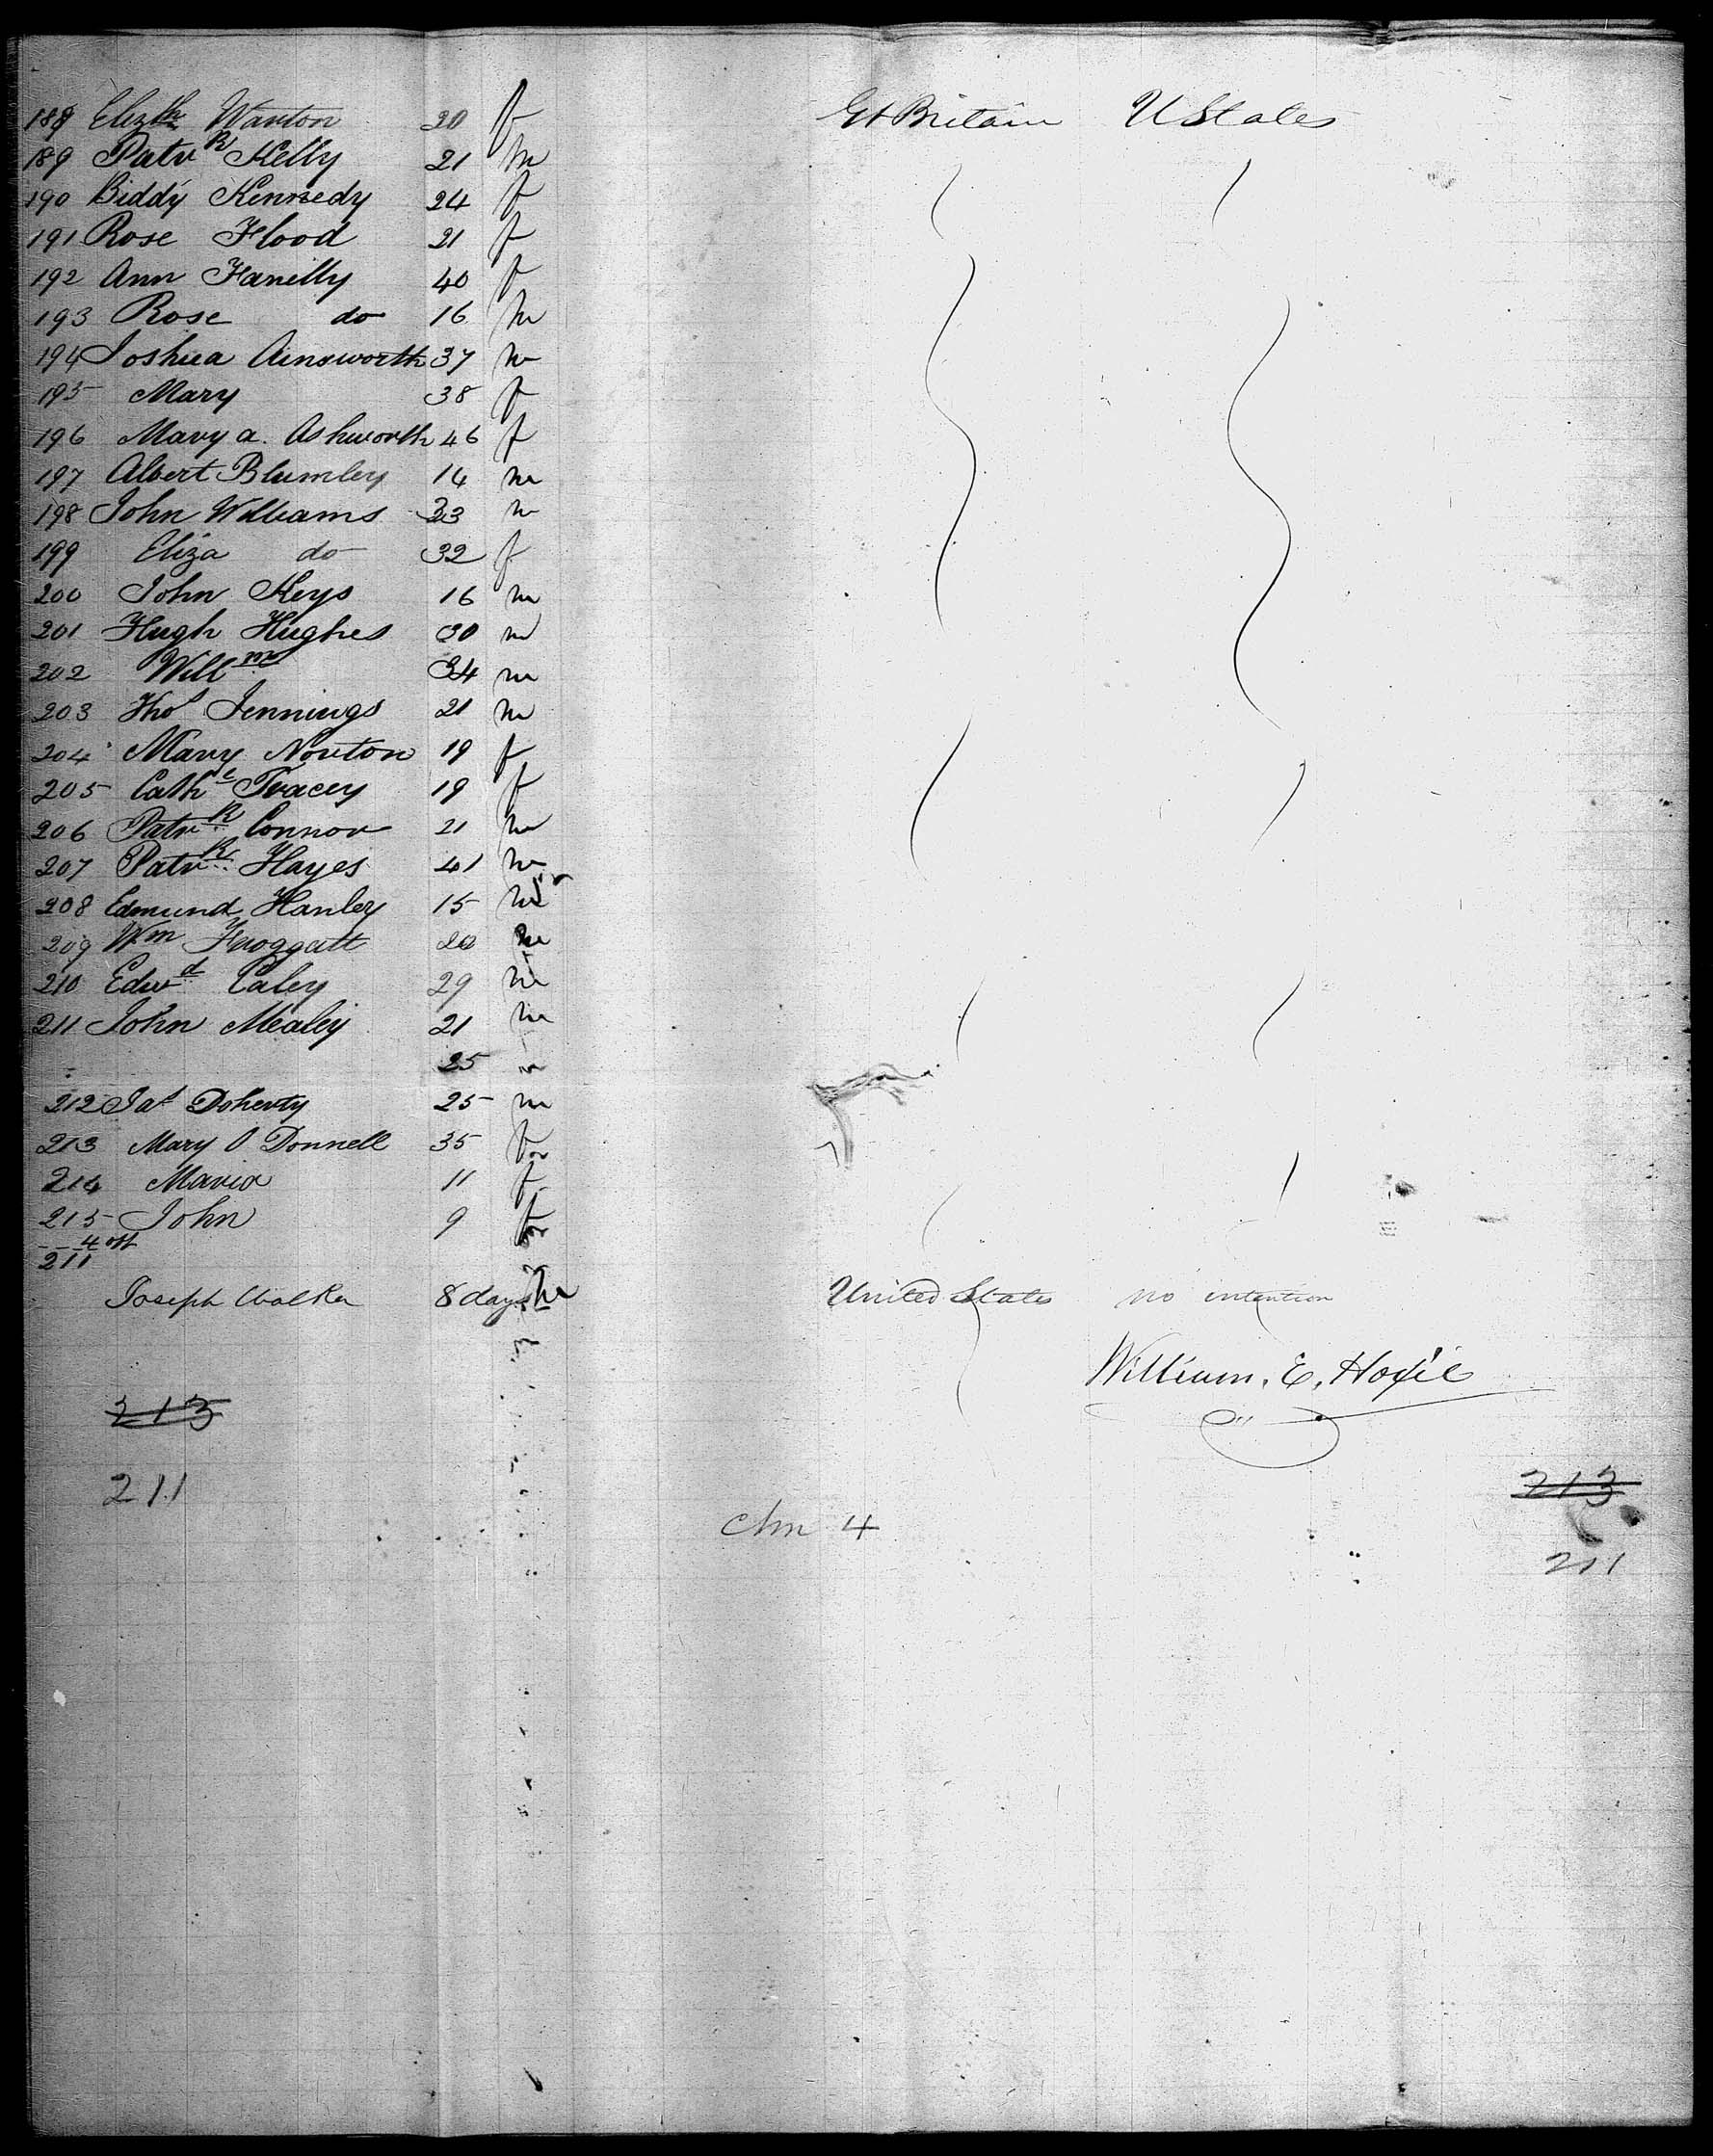 188 Elizth Wanton 20 f Gt Britain U States
189 Patrk Kelly 21 m
190 Biddy Kennedy 24 f
191 Rose Flood 21 f
192 Ann Fanilly 40 f
193 Rose do 16 m
194 Joshua Ainsworth 37 m
195 Mary 38 f
196 Mary a. Ashworth 46 f
197 Albert Blumley 14 m
198 John Williams 33 m
199 Eliza do 32 f
200 John Keys 16 m
201 Hugh Hughes 30 m
202 Willm 34 m
203 Thos Jennings 21 m
204 Mary Norton 19 f
205 Cathe Tracey 19 f
206 Patrk Connor 21 m
207 Patrk Hayes 41 m
208 Edmund Hanley 15 m
209 Wm Froggatt 20 m
210 Edwd Caley 29 m
211 John Mealey 21 m
25 m
212 Jas Doherty 25 m
213 Mary O Donnell 35 f
214 Maria 11 f
215 John 9
4 off
211
Joseph Walker 8 days m United States no intention
William. E. Hoxie
213
211
213
4
211